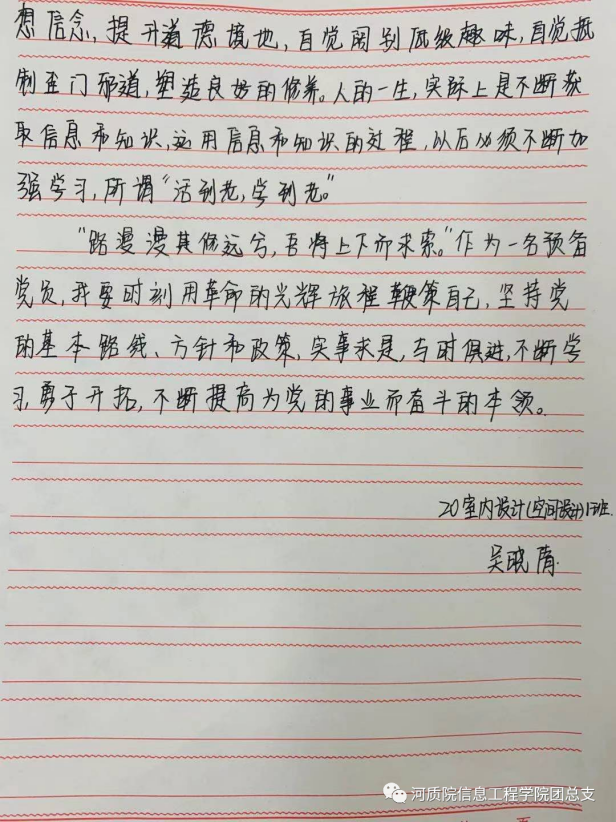 想信念,提升道德境地,自觉阔别低级趣味,自觉抵
制歪门邪道,塑造良好的修养。人的一生,实际上是不断获
取信息和知识,运用信息和知识的过程,以后必须不断加
强学习,所谓“活到老,学到老。”
“路漫漫其修远兮,吾将上下而求索。”作为一名预备
党员,我要时刻用革命的光辉旅程鞭策自己,坚持党
的基本路线、方针和政策,实事求是,与时俱进,不断学
习,勇于开拓,不断提高为党的事业而奋斗的本领。
20室内设计(空间设计)1班.
吴晓
河质院信息工程学院团总支
页